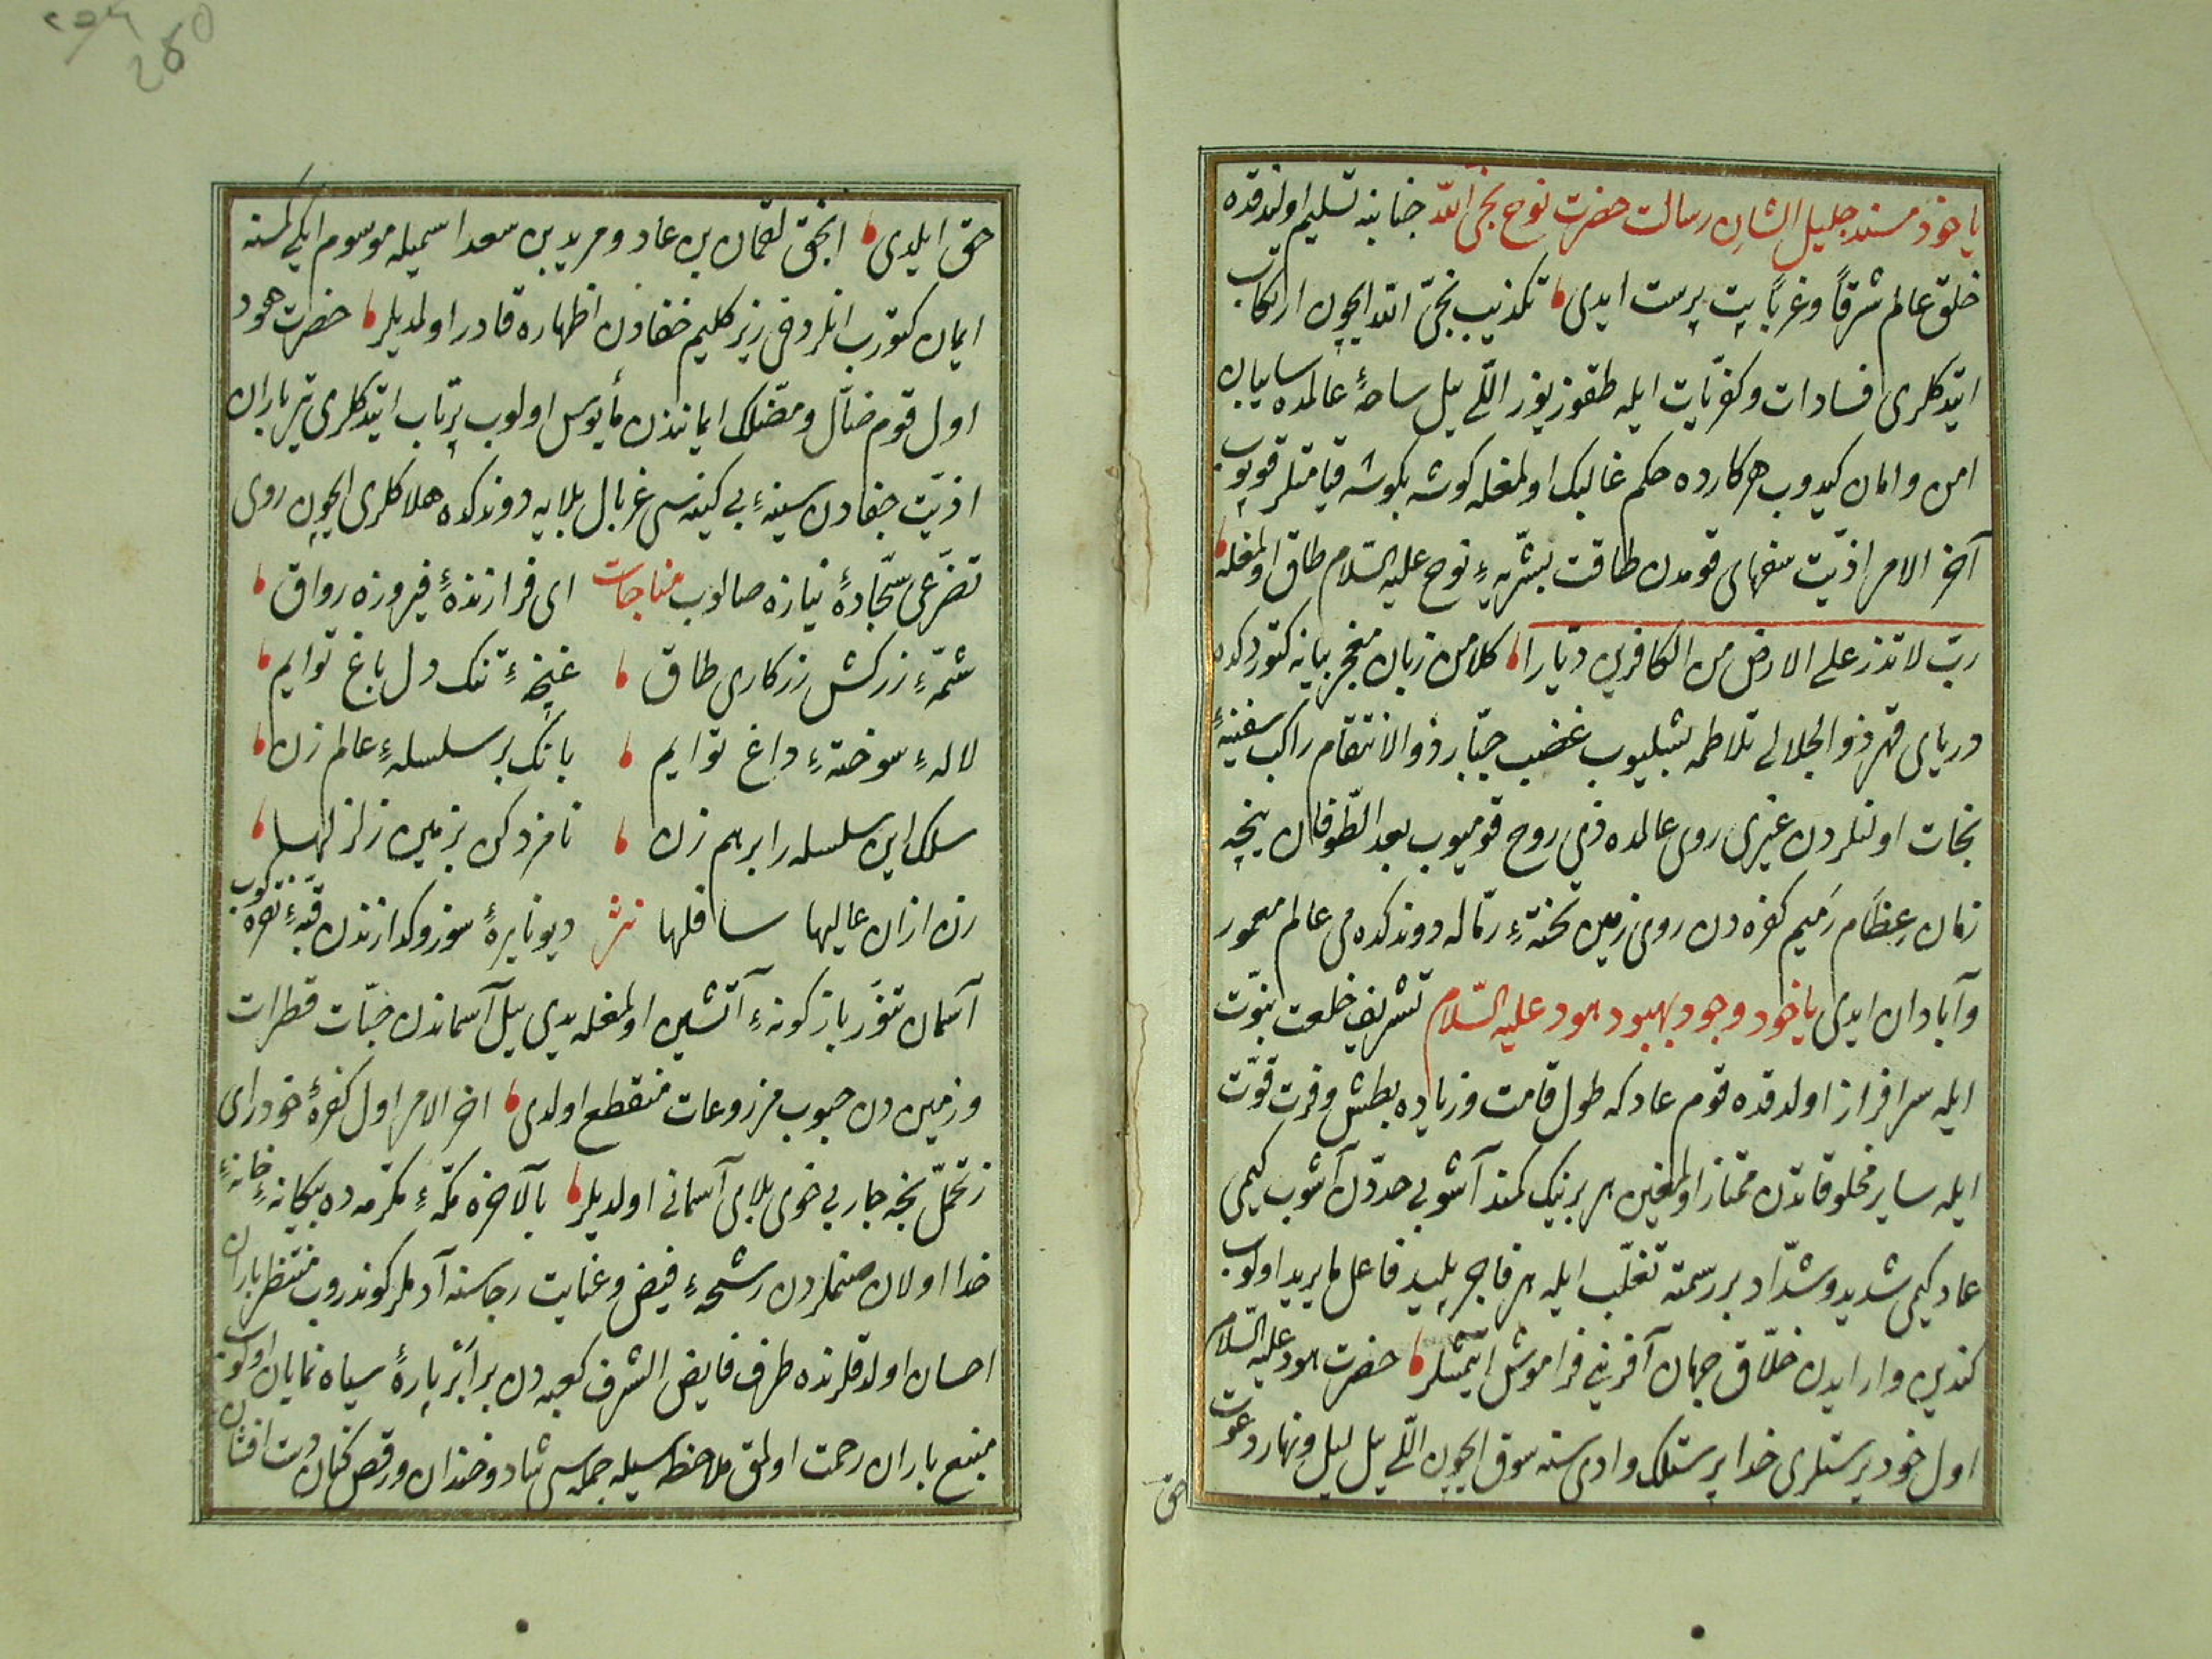 یاخود مسند جلیل الشان رسالت حضرت نوح نجی الله جنابنه تسلیم اولندقده
خلق عالم شرقاً و غرباً بت پرست ایدی تکذیب نجی الله ایچون ارتکاب
ایتدکلری فسادات و کفریات ایله طقوز یوز اللی ییل ساحهٔ عالمده سایبان
امن وامان کیدوب هر کارده حکم غالبک اولمغله کوشه بکوشه قیامتلر قوپوب
آخر الامر اذیت سفهای قومدن طاقت بشریهٔ نوح علیه السلام طاق اولمغله
رب لا تذر علی الارض من الکافرین دیارا کلامن زبان معجز بیانه کتوردکده
دریای قهر ذو الجلالی تلاطمه بشلیوب غضب جبار ذو الانتقام راکب سفینهٔ
نجات اولنلردن غیری روی عالمده ذی روح قومیوب بعد الطوفان نیچه
زمان عظام رمیم کفره دن روی زمین تختهٔ رماله دوندکده می عالم معمور
وآبادان ایدی یاخود وجود بهبود هود علیه السلام تشریف خلعت نبوت
ایله سرافراز اولدقده قوم عاد که طول قامت و زیاده بطش و فرت قوت
ایله سایر مخلوقاتدن ممتاز اولمغین هر برینک کمند آشوبی حددن آشوب کیمی
عاد کیمی شدید و شداد بررسمته تغلب ایله هر فاجر پلید فاعل مایرید اولوب
کندین وار ایدن خلاق جهان آفرینی فراموش ایتمشلر حضرت هود علیه السلام
اول خود پرستلری خدا پرستلک وادیسنه سوق ایچون اللی ییل لیل ونهار دعوت
حق
حق ایلدی انجق لقمان بن عاد و مرید بن سعد اسمیله موسوم ایکی کمسنه
ایمان کتورب انلر دخی زیر کلیم خفادن اظهاره قادر اولمدیلر حضرت هود
اول قوم ضال و مضلک ایمانندن مأیوس اولوب پرتاب ایتدکلری تیر باران
اذیت جفادن سینهٔ بی کینه سی غربال بلایه دوندکده هلاکلری ایچون روی
تضرعی سجادهٔ نیازه صالوب مناجات ای فرازندهٔ فیروزه رواق
شمهٔ زرکش زرکاری طاق غنچهٔ تنک دل باغ توایم
لالهٔ سوختهٔ داغ توایم بانک بر سلسلهٔ عالم زن
سلک این سلسله را برهم زن نامزد کن بزمین زلزلها
زن ازان عالیها سافلها نثر دیو نایرهٔ سوز و کدازندن قبهٔ نقره کوب
آسمان تنور باژکونهٔ آتشین اولمغله یدی ییل آسماندن حبات قطرات
و زمین دن حبوب مزروعات منقطع اولدی اخر الامر اول کفرهٔ خودرای
ز تحمل نجه جار بی خوی بلای آسمانی اولدیلر بالآخره مکهٔ مکرمه ده بیکانهٔ خانهٔ
خدا اولان صنملردن رشحهٔ فیض و عنایت رجاسنه آدملر کوندروب منتظر باران
احسان اولدقلرنده طرف فایض الشرف کعبه دن بر ابر پارهٔ سیاه نمایان اولوب
منبع باران رحمت اولمق ملاحظه سیله جمله سی شاد و خندان و رقص کنان دست افشان